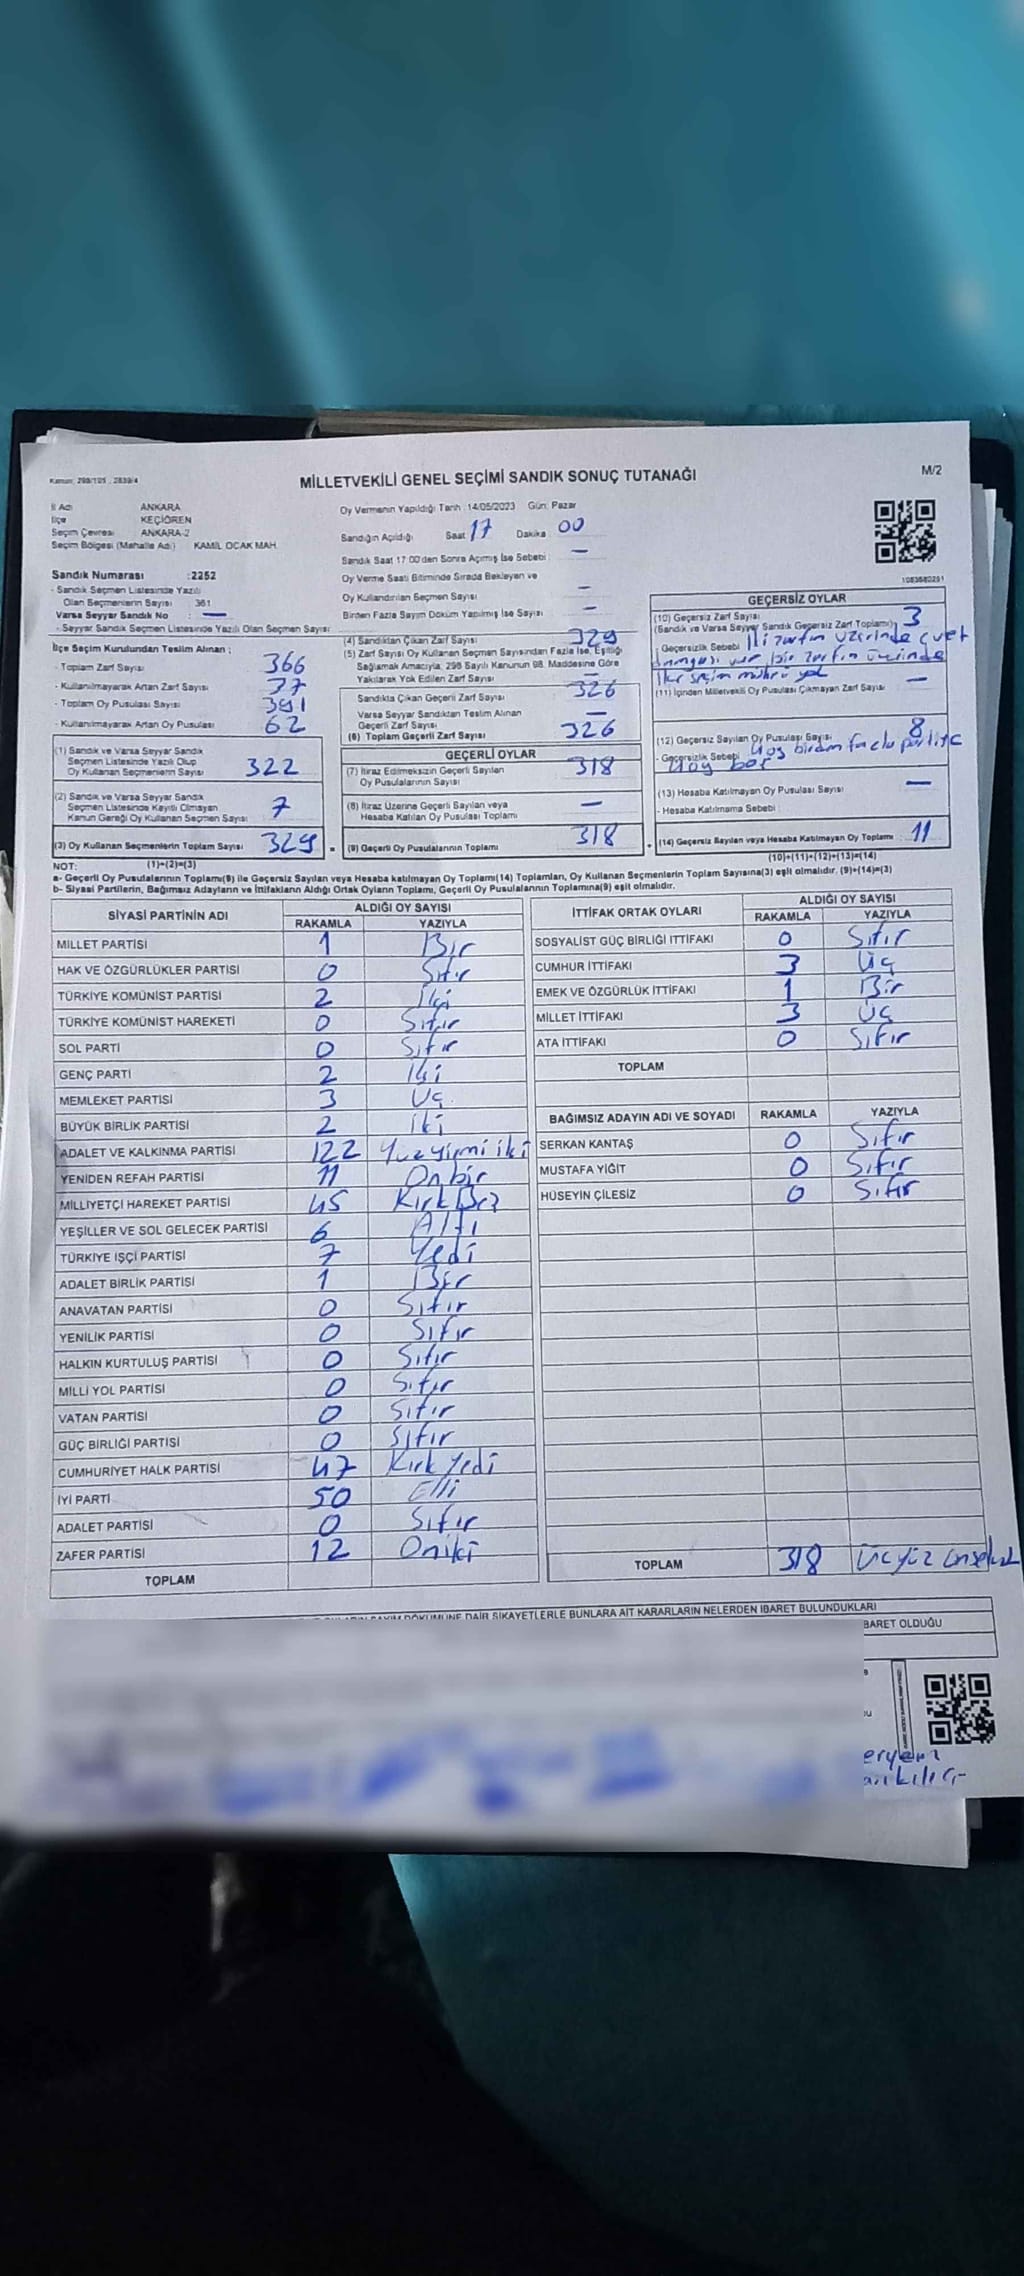 Kanun: 298/105 , 2839/4
MİLLETVEKİLİ GENEL SEÇİMİ SANDIK SONUÇ TUTANAĞI
M/2
İl Adı ANKARA
İlçe KEÇİÖREN
Seçim Çevresi ANKARA-2
Seçim Bölgesi (Mahalle Adı) KAMİL OCAK MAH.
Oy Vermenin Yapıldığı Tarih :14/05/2023 Gün: Pazar
Sandığın Açıldığı Saat 17 Dakika 00
Sandık Saat 17:00'den Sonra Açılmış İse Sebebi : —
Oy Verme Saati Bitiminde Sırada Bekleyen ve
Oy Kullandırılan Seçmen Sayısı —
Birden Fazla Sayım Döküm Yapılmış İse Sayısı —
Sandık Numarası :2252
- Sandık Seçmen Listesinde Yazılı
Olan Seçmenlerin Sayısı 361
Varsa Seyyar Sandık No : —
- Seyyar Sandık Seçmen Listesinde Yazılı Olan Seçmen Sayısı:
İlçe Seçim Kurulundan Teslim Alınan ;
- Toplam Zarf Sayısı 366
- Kullanılmayarak Artan Zarf Sayısı 37
- Toplam Oy Pusulası Sayısı 391
- Kullanılmayarak Artan Oy Pusulası 62
(1) Sandık ve Varsa Seyyar Sandık
Seçmen Listesinde Yazılı Olup
Oy Kullanan Seçmenlerin Sayısı 322
(2) Sandık ve Varsa Seyyar Sandık
Seçmen Listesinde Kayıtlı Olmayan
Kanun Gereği Oy Kullanan Seçmen Sayısı 7
(3) Oy Kullanan Seçmenlerin Toplam Sayısı 329
(4) Sandıktan Çıkan Zarf Sayısı 329
(5) Zarf Sayısı Oy Kullanan Seçmen Sayısından Fazla İse, Eşitliği
Sağlamak Amacıyla, 298 Sayılı Kanunun 98. Maddesine Göre
Yakılarak Yok Edilen Zarf Sayısı —
Sandıkta Çıkan Geçerli Zarf Sayısı 326
Varsa Seyyar Sandıktan Teslim Alınan
Geçerli Zarf Sayısı —
(6) Toplam Geçerli Zarf Sayısı 326
GEÇERLİ OYLAR
(7) İtiraz Edilmeksizin Geçerli Sayılan
Oy Pusulalarının Sayısı 318
(8) İtiraz Üzerine Geçerli Sayılan veya
Hesaba Katılan Oy Pusulası Toplamı —
= (9) Geçerli Oy Pusulalarının Toplamı 318
1083680291
GEÇERSİZ OYLAR
(10) Geçersiz Zarf Sayısı
(Sandık ve Varsa Seyyar Sandık Geçersiz Zarf Toplamı) 3
Geçersizlik Sebebi İki zarfın üzerinde evet
damgası var bir zarfın üzerinde
ilçe seçim mührü yok
(11) İçinden Milletvekili Oy Pusulası Çıkmayan Zarf Sayısı —
(12) Geçersiz Sayılan Oy Pusulası Sayısı 8
- Geçersizlik Sebebi 4 oy birden fazla partiye
4 oy boş
(13) Hesaba Katılmayan Oy Pusulası Sayısı —
- Hesaba Katılmama Sebebi
+ (14) Geçersiz Sayılan veya Hesaba Katılmayan Oy Toplamı 11
NOT: (1)+(2)=(3)
(10)+(11)+(12)+(13)=(14)
a- Geçerli Oy Pusulalarının Toplamı(9) ile Geçersiz Sayılan veya Hesaba katılmayan Oy Toplamı(14) Toplamları, Oy Kullanan Seçmenlerin Toplam Sayısına(3) eşit olmalıdır. (9)+(14)=(3)
b- Siyasi Partilerin, Bağımsız Adayların ve İttifakların Aldığı Ortak Oyların Toplamı, Geçerli Oy Pusulalarının Toplamına(9) eşit olmalıdır.
SİYASİ PARTİNİN ADI ALDIĞI OY SAYISI
RAKAMLA YAZIYLA
MİLLET PARTİSİ 1 Bir
HAK VE ÖZGÜRLÜKLER PARTİSİ 0 Sıfır
TÜRKİYE KOMÜNİST PARTİSİ 2 İki
TÜRKİYE KOMÜNİST HAREKETİ 0 Sıfır
SOL PARTİ 0 Sıfır
GENÇ PARTİ 2 İki
MEMLEKET PARTİSİ 3 Üç
BÜYÜK BİRLİK PARTİSİ 2 İki
ADALET VE KALKINMA PARTİSİ 122 Yüzyirmi iki
YENİDEN REFAH PARTİSİ 11 Onbir
MİLLİYETÇİ HAREKET PARTİSİ 45 Kırk Beş
YEŞİLLER VE SOL GELECEK PARTİSİ 6 Altı
TÜRKİYE İŞÇİ PARTİSİ 7 Yedi
ADALET BİRLİK PARTİSİ 1 Bir
ANAVATAN PARTİSİ 0 Sıfır
YENİLİK PARTİSİ 0 Sıfır
HALKIN KURTULUŞ PARTİSİ 0 Sıfır
MİLLİ YOL PARTİSİ 0 Sıfır
VATAN PARTİSİ 0 Sıfır
GÜÇ BİRLİĞİ PARTİSİ 0 Sıfır
CUMHURİYET HALK PARTİSİ 47 Kırk Yedi
İYİ PARTİ 50 Elli
ADALET PARTİSİ 0 Sıfır
ZAFER PARTİSİ 12 Oniki
TOPLAM
İTTİFAK ORTAK OYLARI ALDIĞI OY SAYISI
RAKAMLA YAZIYLA
SOSYALİST GÜÇ BİRLİĞİ İTTİFAKI 0 Sıfır
CUMHUR İTTİFAKI 3 Üç
EMEK VE ÖZGÜRLÜK İTTİFAKI 1 Bir
MİLLET İTTİFAKI 3 Üç
ATA İTTİFAKI 0 Sıfır
TOPLAM
BAĞIMSIZ ADAYIN ADI VE SOYADI RAKAMLA YAZIYLA
SERKAN KANTAŞ 0 Sıfır
MUSTAFA YİĞİT 0 Sıfır
HÜSEYİN ÇİLESİZ 0 Sıfır
TOPLAM 318 Üçyüz onsekiz
SAYIM DÖKÜMÜNE DAİR ŞİKAYETLERLE BUNLARA AİT KARARLARIN NELERDEN İBARET BULUNDUKLARI
BARET OLDUĞU